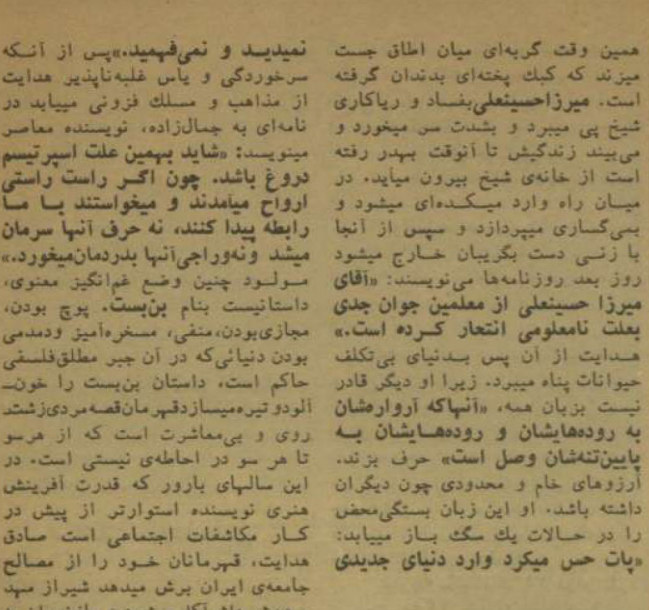 همین وقت گربه‌ای میان اطاق جست
میزند که کبك پخته‌ای بدندان گرفته
است. میرزاحسینعلی بفساد و ریاکاری
شیخ پی میبرد و بشدت سر میخورد و
می‌بیند زندگیش تا آنوقت بهدر رفته
است از خانه‌ی شیخ بیرون میاید. در
میان راه وارد میکده‌ای میشود و
بمی‌گساری میپردازد و سپس از آنجا
با زنی دست بگریبان خارج میشود
روز بعد روزنامه‌ها می‌نویسند: «آقای
میرزا حسینعلی از معلمین جوان جدی
بعلت نامعلومی انتحار کرده است.»
هدایت از آن پس بدنیای بی‌تکلف
حیوانات پناه میبرد. زیرا او دیگر قادر
نیست بزبان همه، «آنهاکه آرواره‌شان
به روده‌هایشان و روده‌هایشان به
پایین‌تنه‌شان وصل است» حرف بزند.
آرزوهای خام و محدودی چون دیگران
داشته باشد. او این زبان بستگی‌محض
را در حالات یك سگ باز مییابد:
«پات حس میکرد وارد دنیای جدیدی
نمیدید و نمی‌فهمید.» پس از آنکه
سرخوردگی و یاس غلبه‌ناپذیر هدایت
از مذاهب و مسلك فزونی مییابد در
نامه‌ای به جمال‌زاده، نویسنده معاصر
مینویسد: «شاید بهمین علت اسپرتیسم
دروغ باشد. چون اگر راست راستی
ارواح میآمدند و میخواستند با ما
رابطه پیدا کنند، نه حرف آنها سرمان
میشد و نه وراجی آنها بدردمان میخورد.»
مولود چنین وضع غم‌انگیز معنوی،
داستانیست بنام بن‌بست. پوچ بودن،
مجازی‌بودن، منفی، مسخره‌آمیز ودمدمی
بودن دنیائی‌که در آن جبر مطلق‌فلسفی
حاکم است، داستان بن‌بست را خون‌ـ
آلود و تیره میسازد قهرمان قصه مردی زشت
روی و بی‌معاشرت است که از هرسو
تا هر سو در احاطه‌ی نیستی است. در
این سالهای بارور که قدرت آفرینش
هنری نویسنده استوارتر از پیش در
کار مکاشفات اجتماعی است صادق
هدایت، قهرمانان خود را از مصالح
جامعه‌ی ایران برش میدهد شیراز مهد